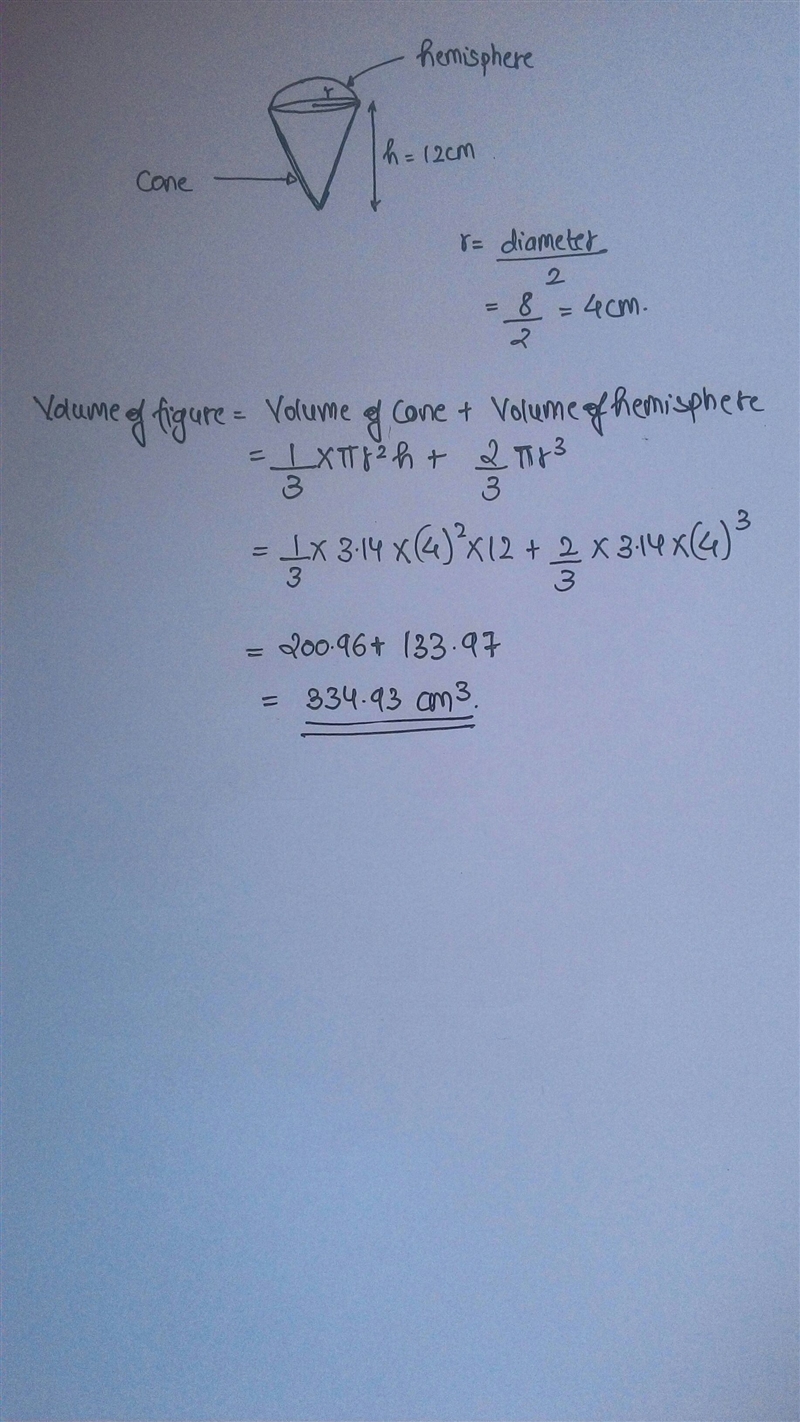 hemisphere
r
h = 12cm
Cone
r = diameter / 2
= 8/2 = 4cm.
Volume of figure = Volume of Cone + Volume of hemisphere
= 1/3 × πr²h + 2/3 πr³
= 1/3 × 3.14 × (4)² × 12 + 2/3 × 3.14 × (4)³
= 200.96 + 133.97
= 334.93 cm³.